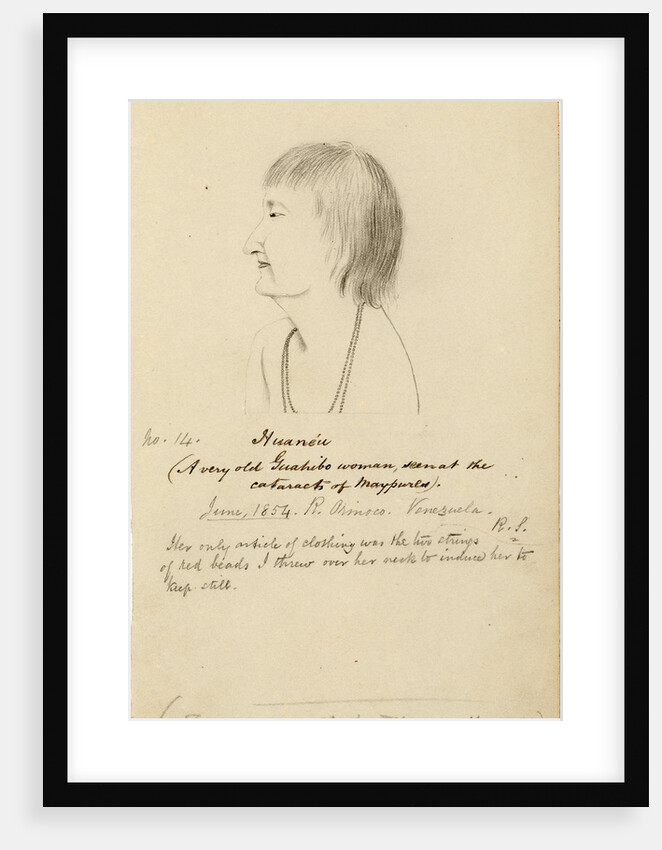 No. 14.
Huanéu
(A very old Guahibo woman, seen at the
cataracts of Maypures).
June, 1854. R. Orinoco. Venezuela.
R.S.
Her only article of clothing was the two strings
of red beads I threw over her neck to induce her to
keep still.